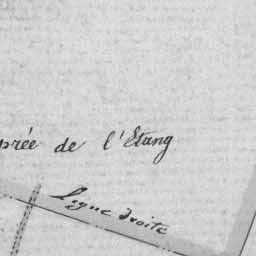 prée de l'Etang
Ligne droite